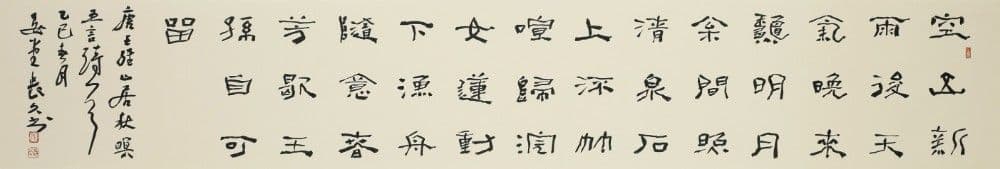 空山新
雨後天
氣晚來
龝明月
枀間照
清泉石
上流竹
喧歸浣
女蓮動
下漁舟
隨意春
芳歇王
孫自可
留
唐王維山居秋暝
五言詩
乙巳月